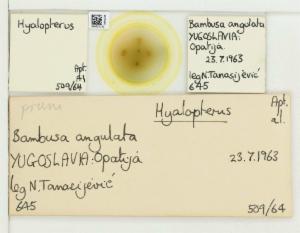 Hyalopterus
Apt.
al.
509/64
Bambusa angulata
YUGOSLAVIA:
Opatija
23.7.1963
leg N. Tanasijević
645
pruni
Hyalopterus
Apt.
al.
Bambusa angulata
YUGOSLAVIA: Opatija
23.7.1963
leg N. Tanasijević
645
509/64